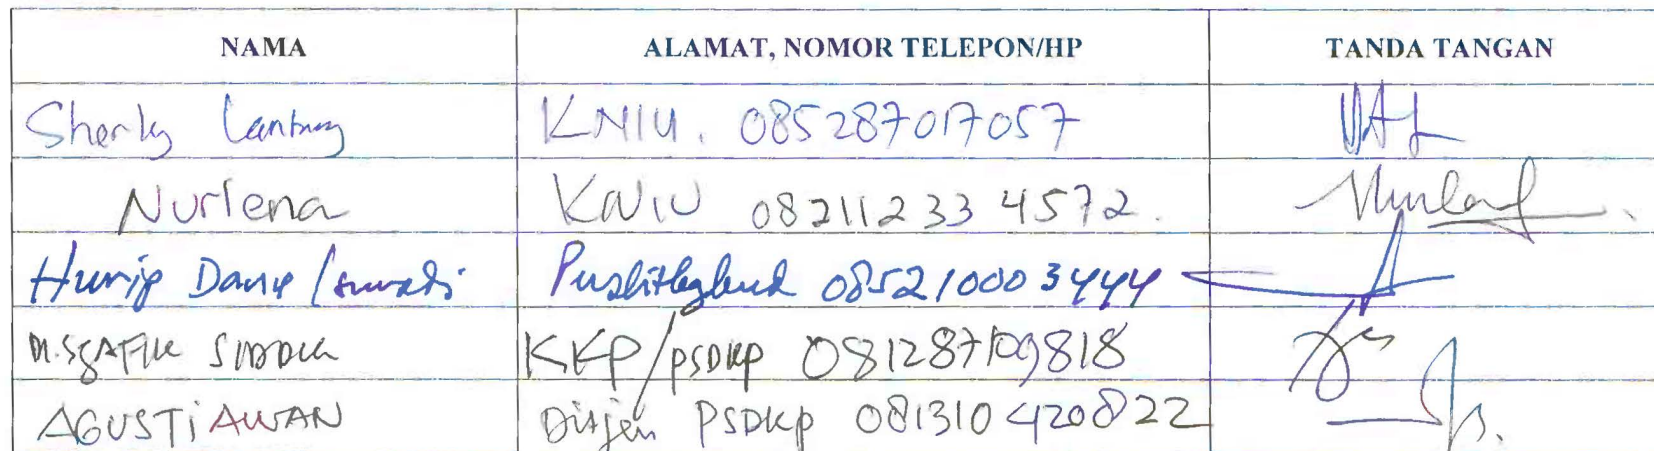 NAMA ALAMAT, NOMOR TELEPON/HP TANDA TANGAN
Sherly Lantang KNIU. 085287017057
Nurlena KNIU 082112334572.
Hurip Danu 085210003444
M. SYAFIK SIDDIK KKP/PSDKP 081287109818
AGUSTIAWAN Ditjen PSDKP 081310420822